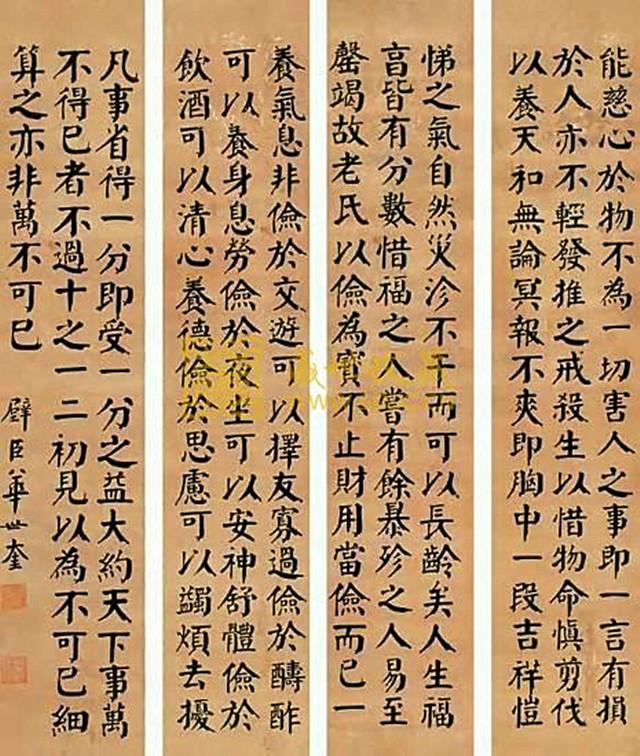 能慈心於物不為一切害人之事即一言有損
於人亦不輕發推之戒殺生以惜物命慎剪伐
以養天和無論冥報不爽即胸中一段吉祥愷
悌之氣自然災沴不干而可以長齡矣人生福
亯皆有分數惜福之人嘗有餘暴殄之人易至
罄竭故老氏以儉為寶不止財用當儉而已一
養氣息非儉於交遊可以擇友寡過儉於醻酢
可以養身息勞儉於夜坐可以安神舒體儉於
飲酒可以清心養德儉於思慮可以蠲煩去擾
凡事省得一分即受一分之益大約天下事萬
不得已者不過十之一二初見以為不可已細
算之亦非萬不可已
璧臣華世奎